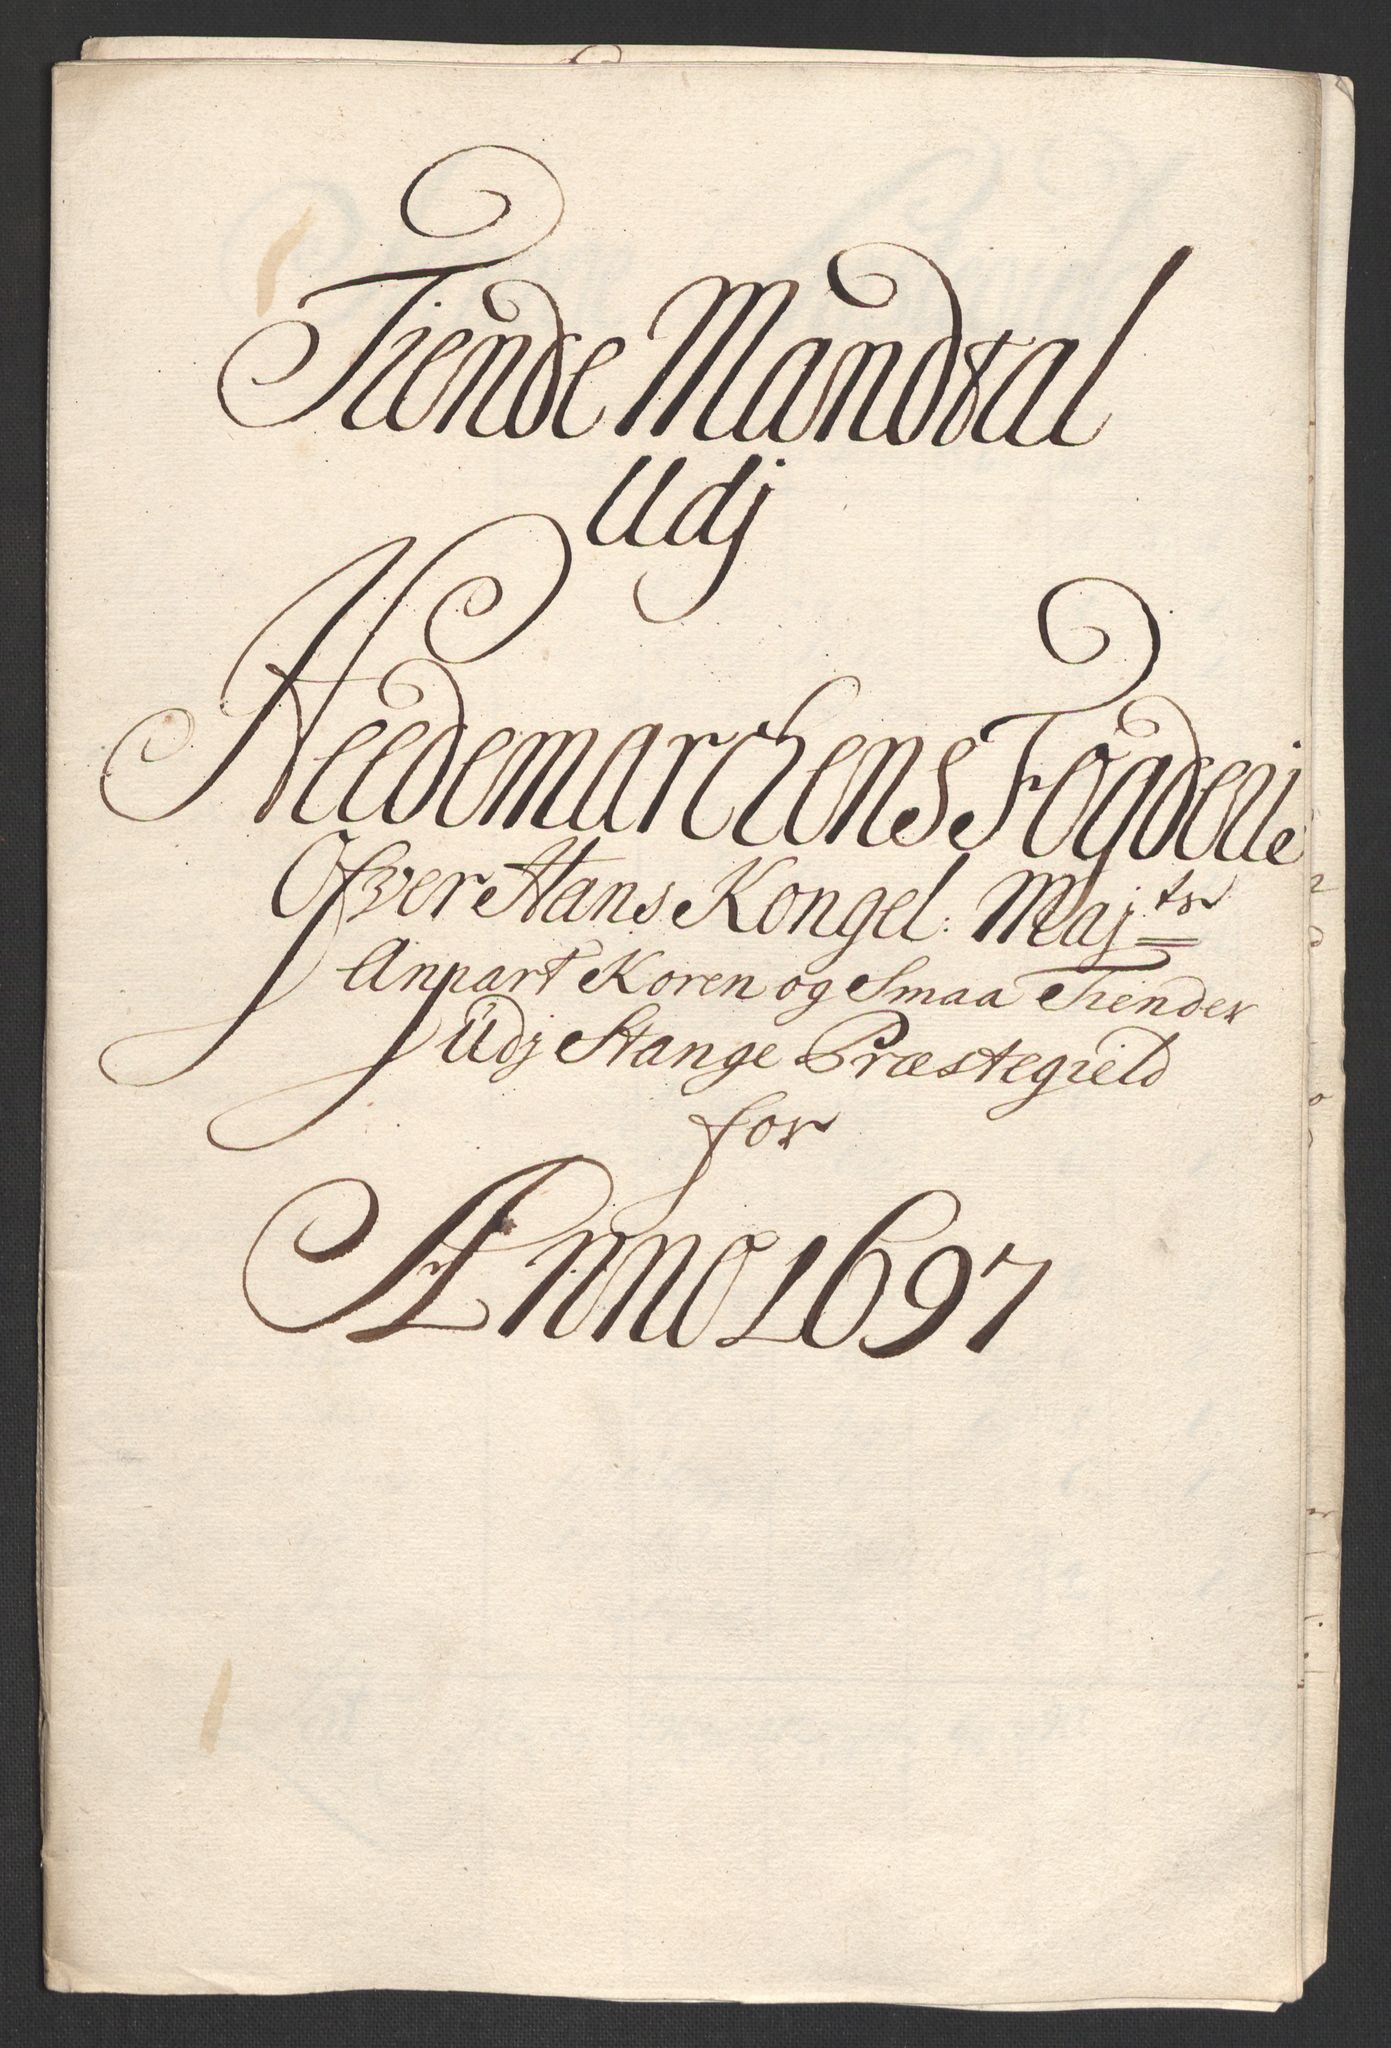 Tiende Mandtal
Udj
Heedemarchens Fogderie
Ofver Hans Kongel: Majts
Anpart Koren og Smaa Tiender
Udj Stange Præstegield
for
Anno 1697